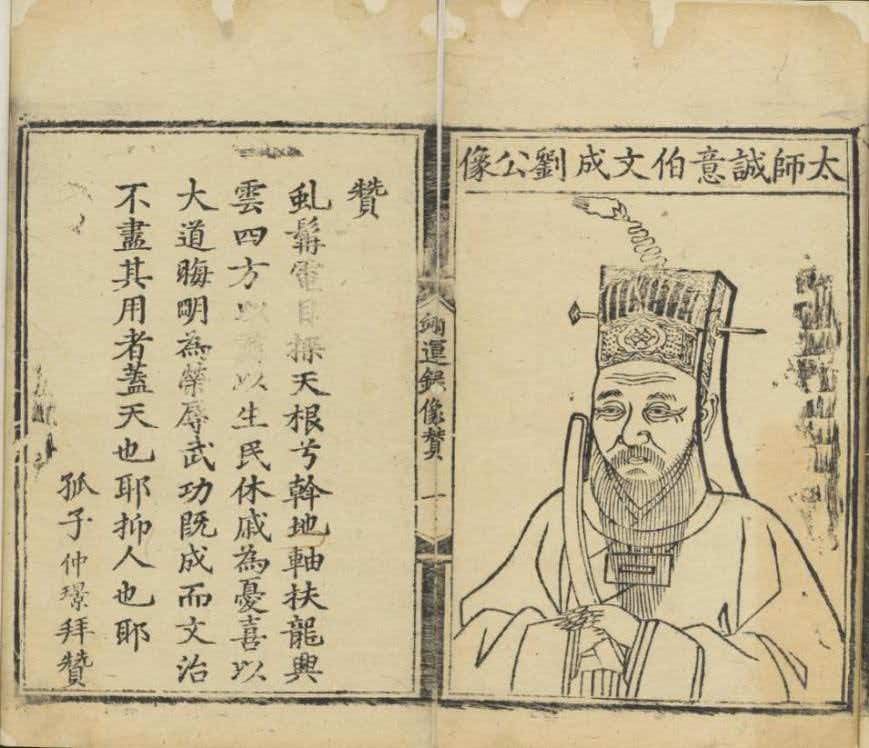 太師誠意伯文成劉公像
翊運錄像贊 一
贊
虬髯電目探天根兮斡地軸扶龍興
雲四方以 以生民休戚為憂喜以
大道晦明為榮辱武功既成而文治
不盡其用者蓋天也耶抑人也耶
孤子仲璟拜贊